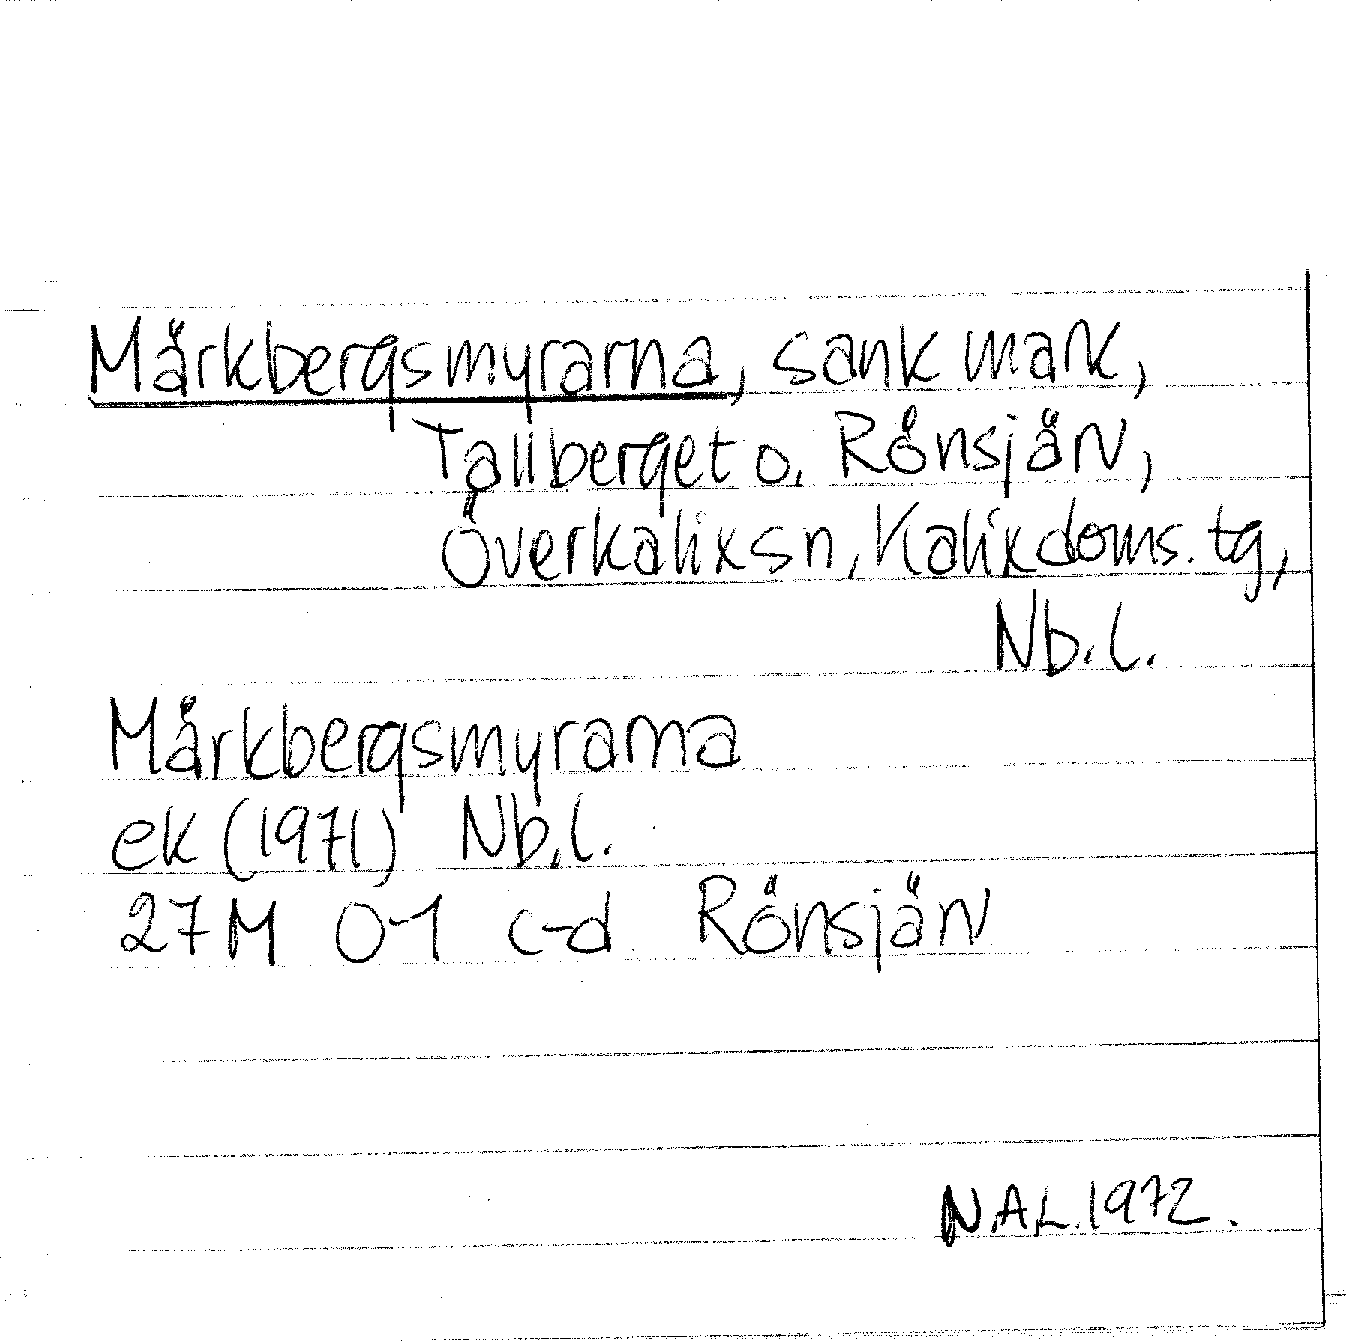 Märkbergsmyrarna, sank mark,
Tallberget o. Rönsjärv,
Överkalix sn, Kalix doms. tg,
Nb. l.
Märkbergsmyrarna
ek (1971) Nb. l.
27 M 0-1 c-d Rönsjärv
N.A.L. 1972.